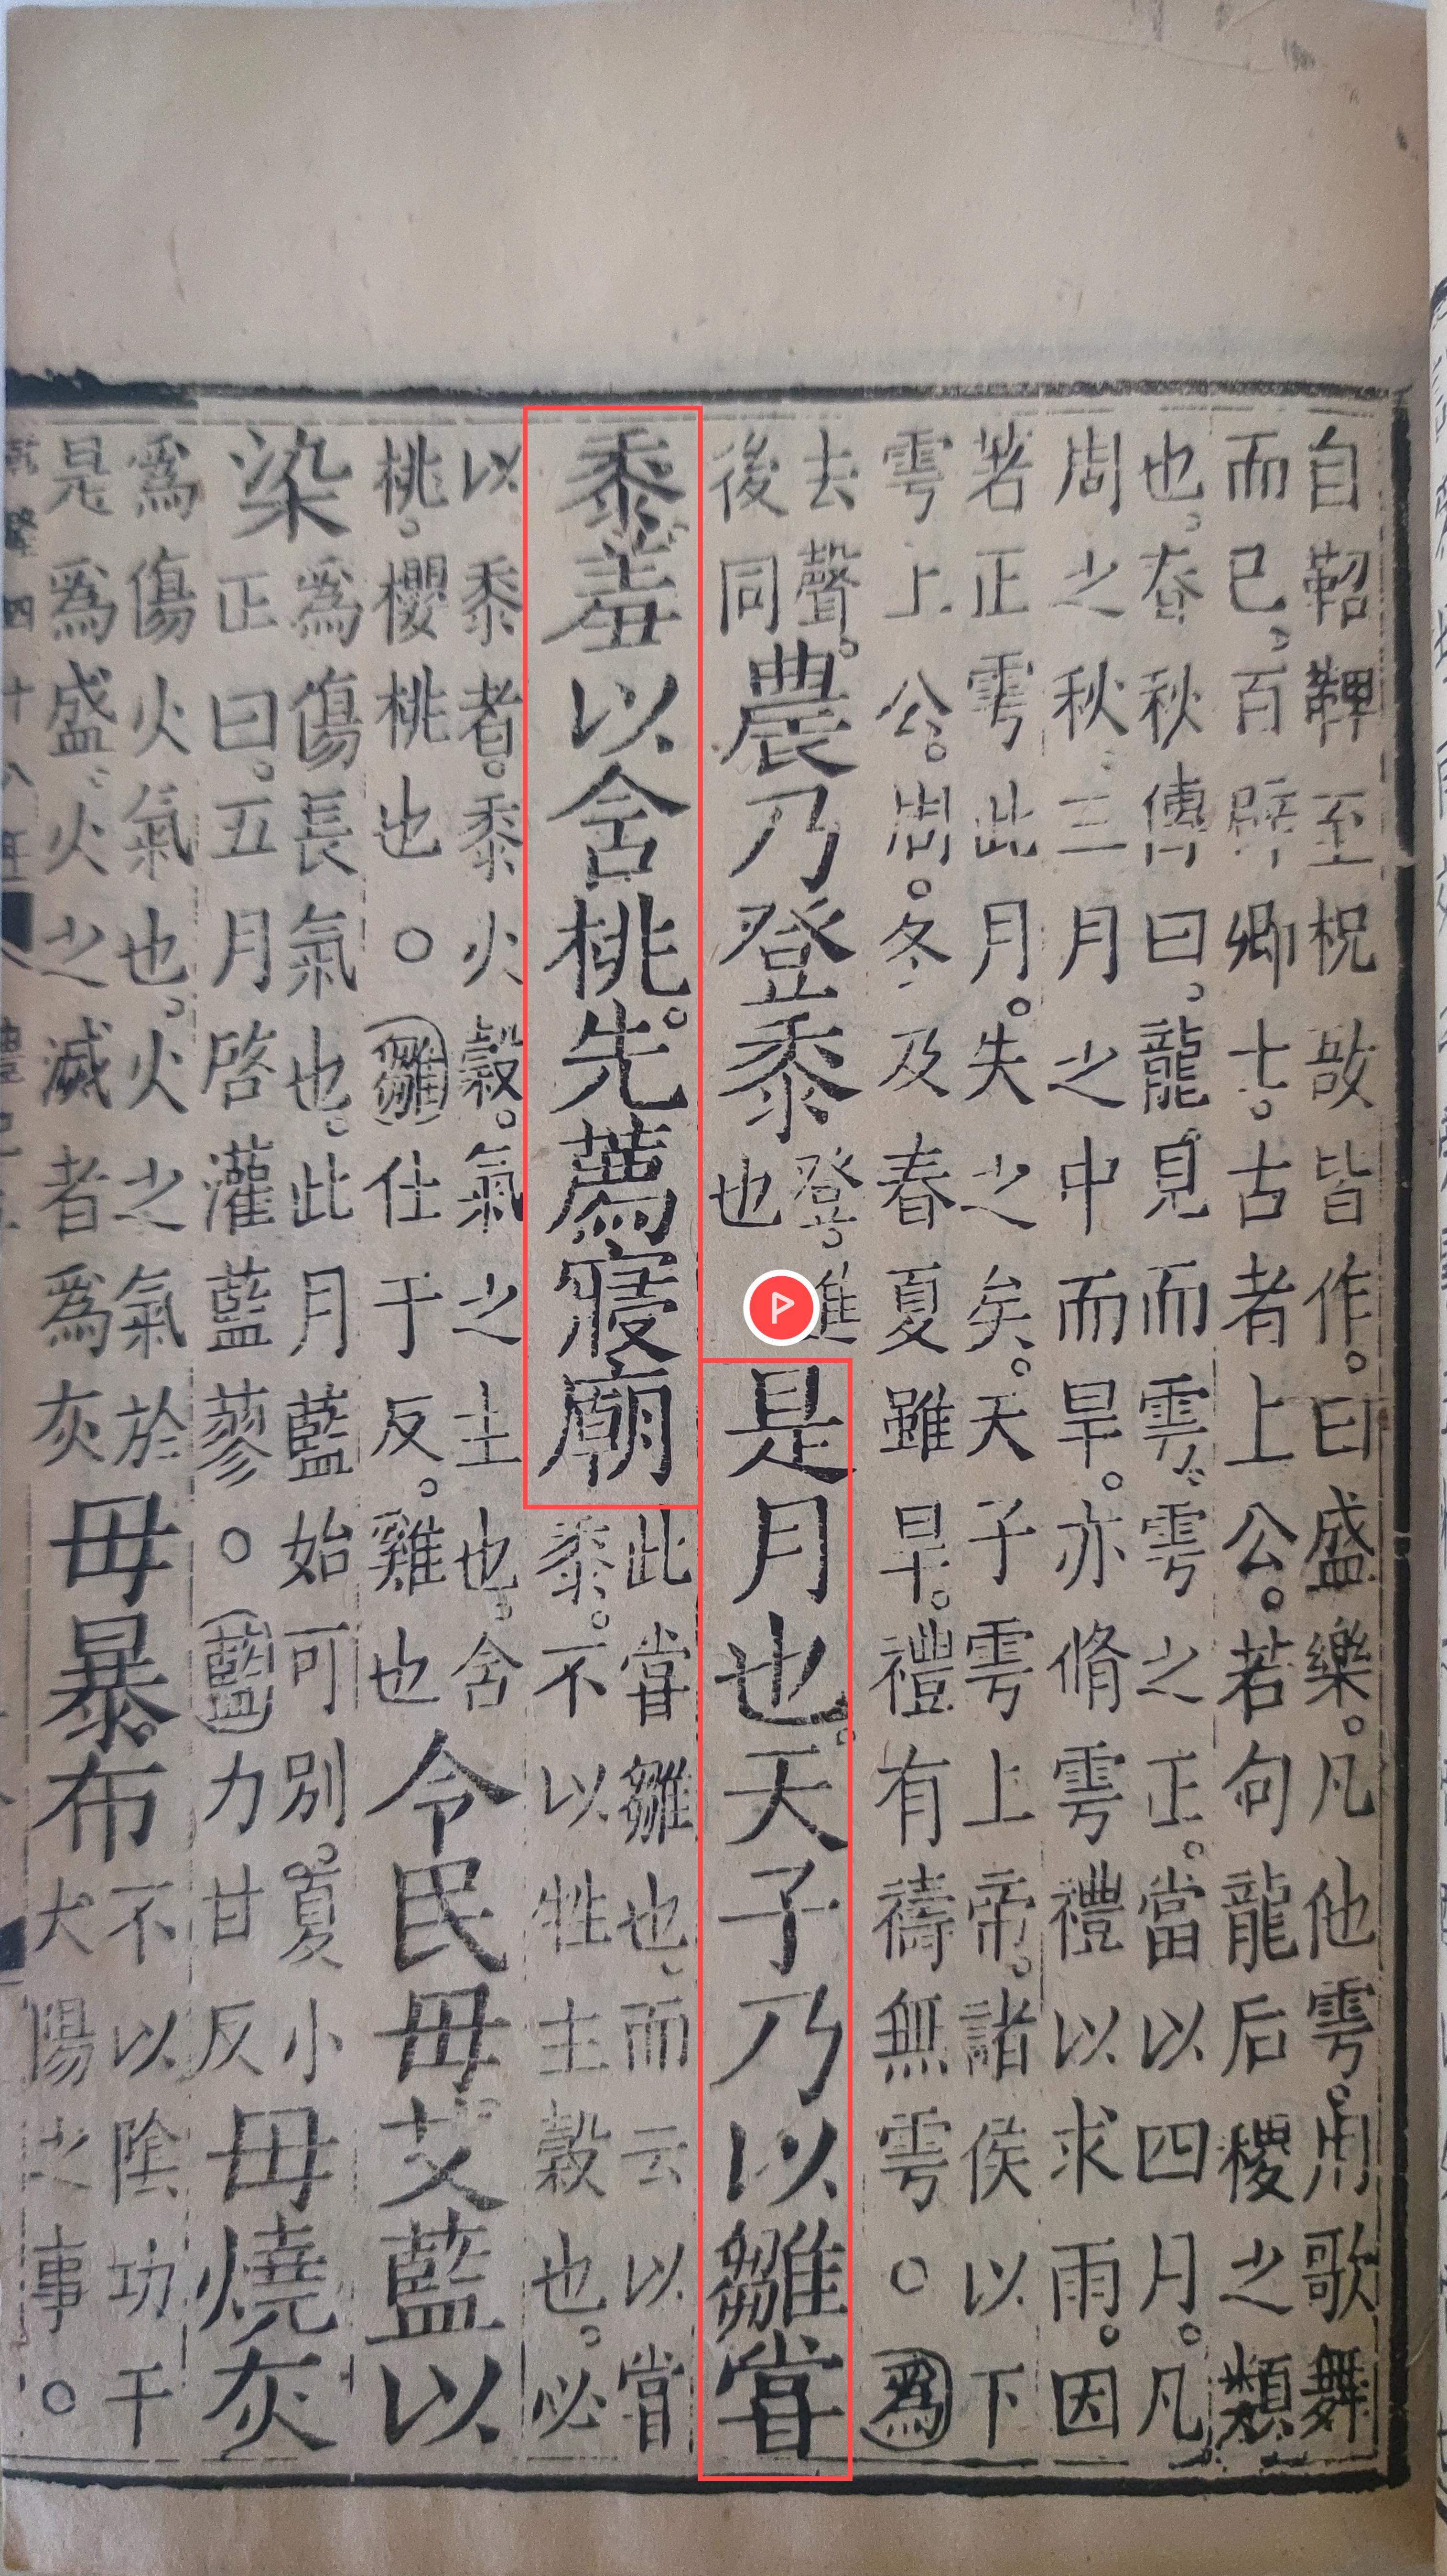 自鞀鞞至柷敔皆作。曰盛樂。凡他雩。用歌舞
而已。百辟卿士。古者上公。若句龍后稷之類
也。春秋傳曰。龍見而雩。雩之正。當以四月。凡
周之秋。三月之中而旱。亦脩雩禮以求雨。因
著正雩此月。失之矣。天子雩上帝。諸侯以下
雩上公。周。冬及春夏雖旱。禮有禱無雩。○爲
去聲。
後同
農乃登黍
登。進
也
是月也。天子乃以雛嘗
黍。羞以含桃。先薦寢廟
此嘗雛也。而云以嘗
黍。不以牲主穀也。必
以黍者。黍火穀。氣之主也。含
桃。櫻桃也○雛仕于反。雞也
令民毋艾藍以
染
爲傷長氣也。此月藍始可別。夏小
正曰。五月啓灌藍蓼○藍力甘反
毋燒灰
爲傷火氣也。火之氣於
是爲盛。火之滅者爲灰
毋暴布
不以陰功干
大陽之事。○